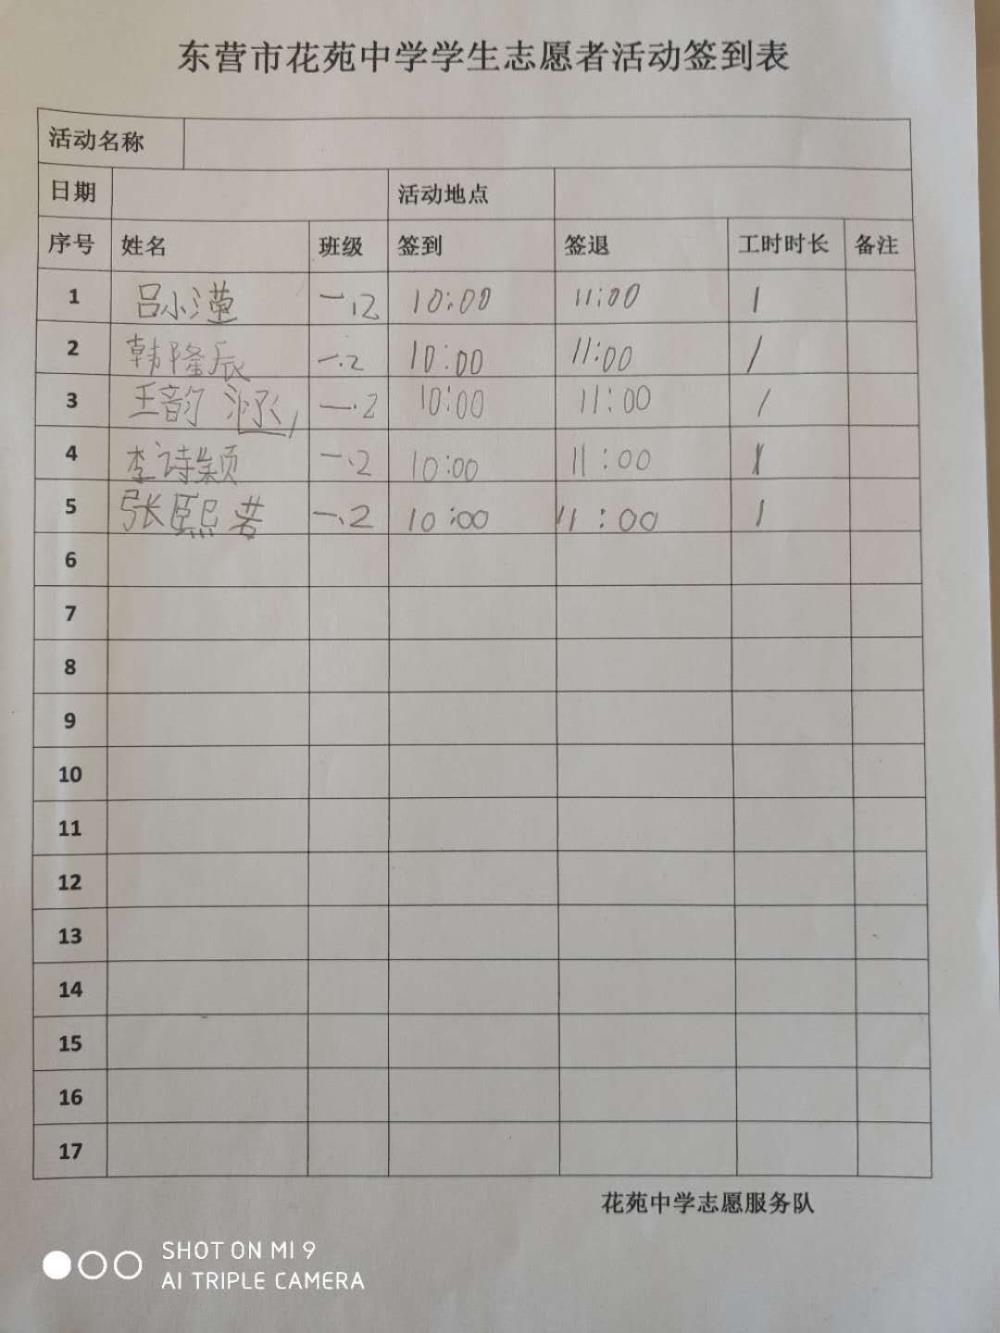 东营市花苑中学学生志愿者活动签到表
活动名称
日期 活动地点
序号 姓名 班级 签到 签退 工时时长 备注
1 吕小 一.12 10:00 11:00 1
2 韩隆辰 一.2 10:00 11:00 1
3 王韵 一.2 10:00 11:00 1
4 李诗颖 一.2 10:00 11:00 1
5 张熙若 一.2 10:00 11:00 1
6
7
8
9
10
11
12
13
14
15
16
17
花苑中学志愿服务队
SHOT ON MI 9
AI TRIPLE CAMERA